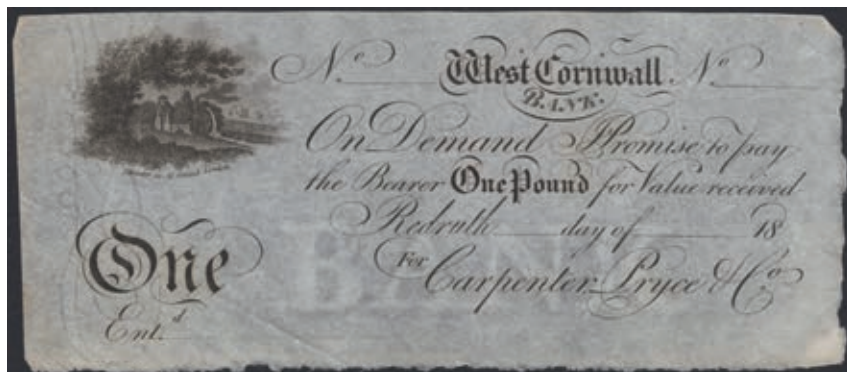 No. West Cornwall No.
BANK.
On Demand I Promise to pay
the Bearer One Pound for Value received
Redruth day of 18
For Carpenter, Pryce & Co.
One
Ent.d
BANK